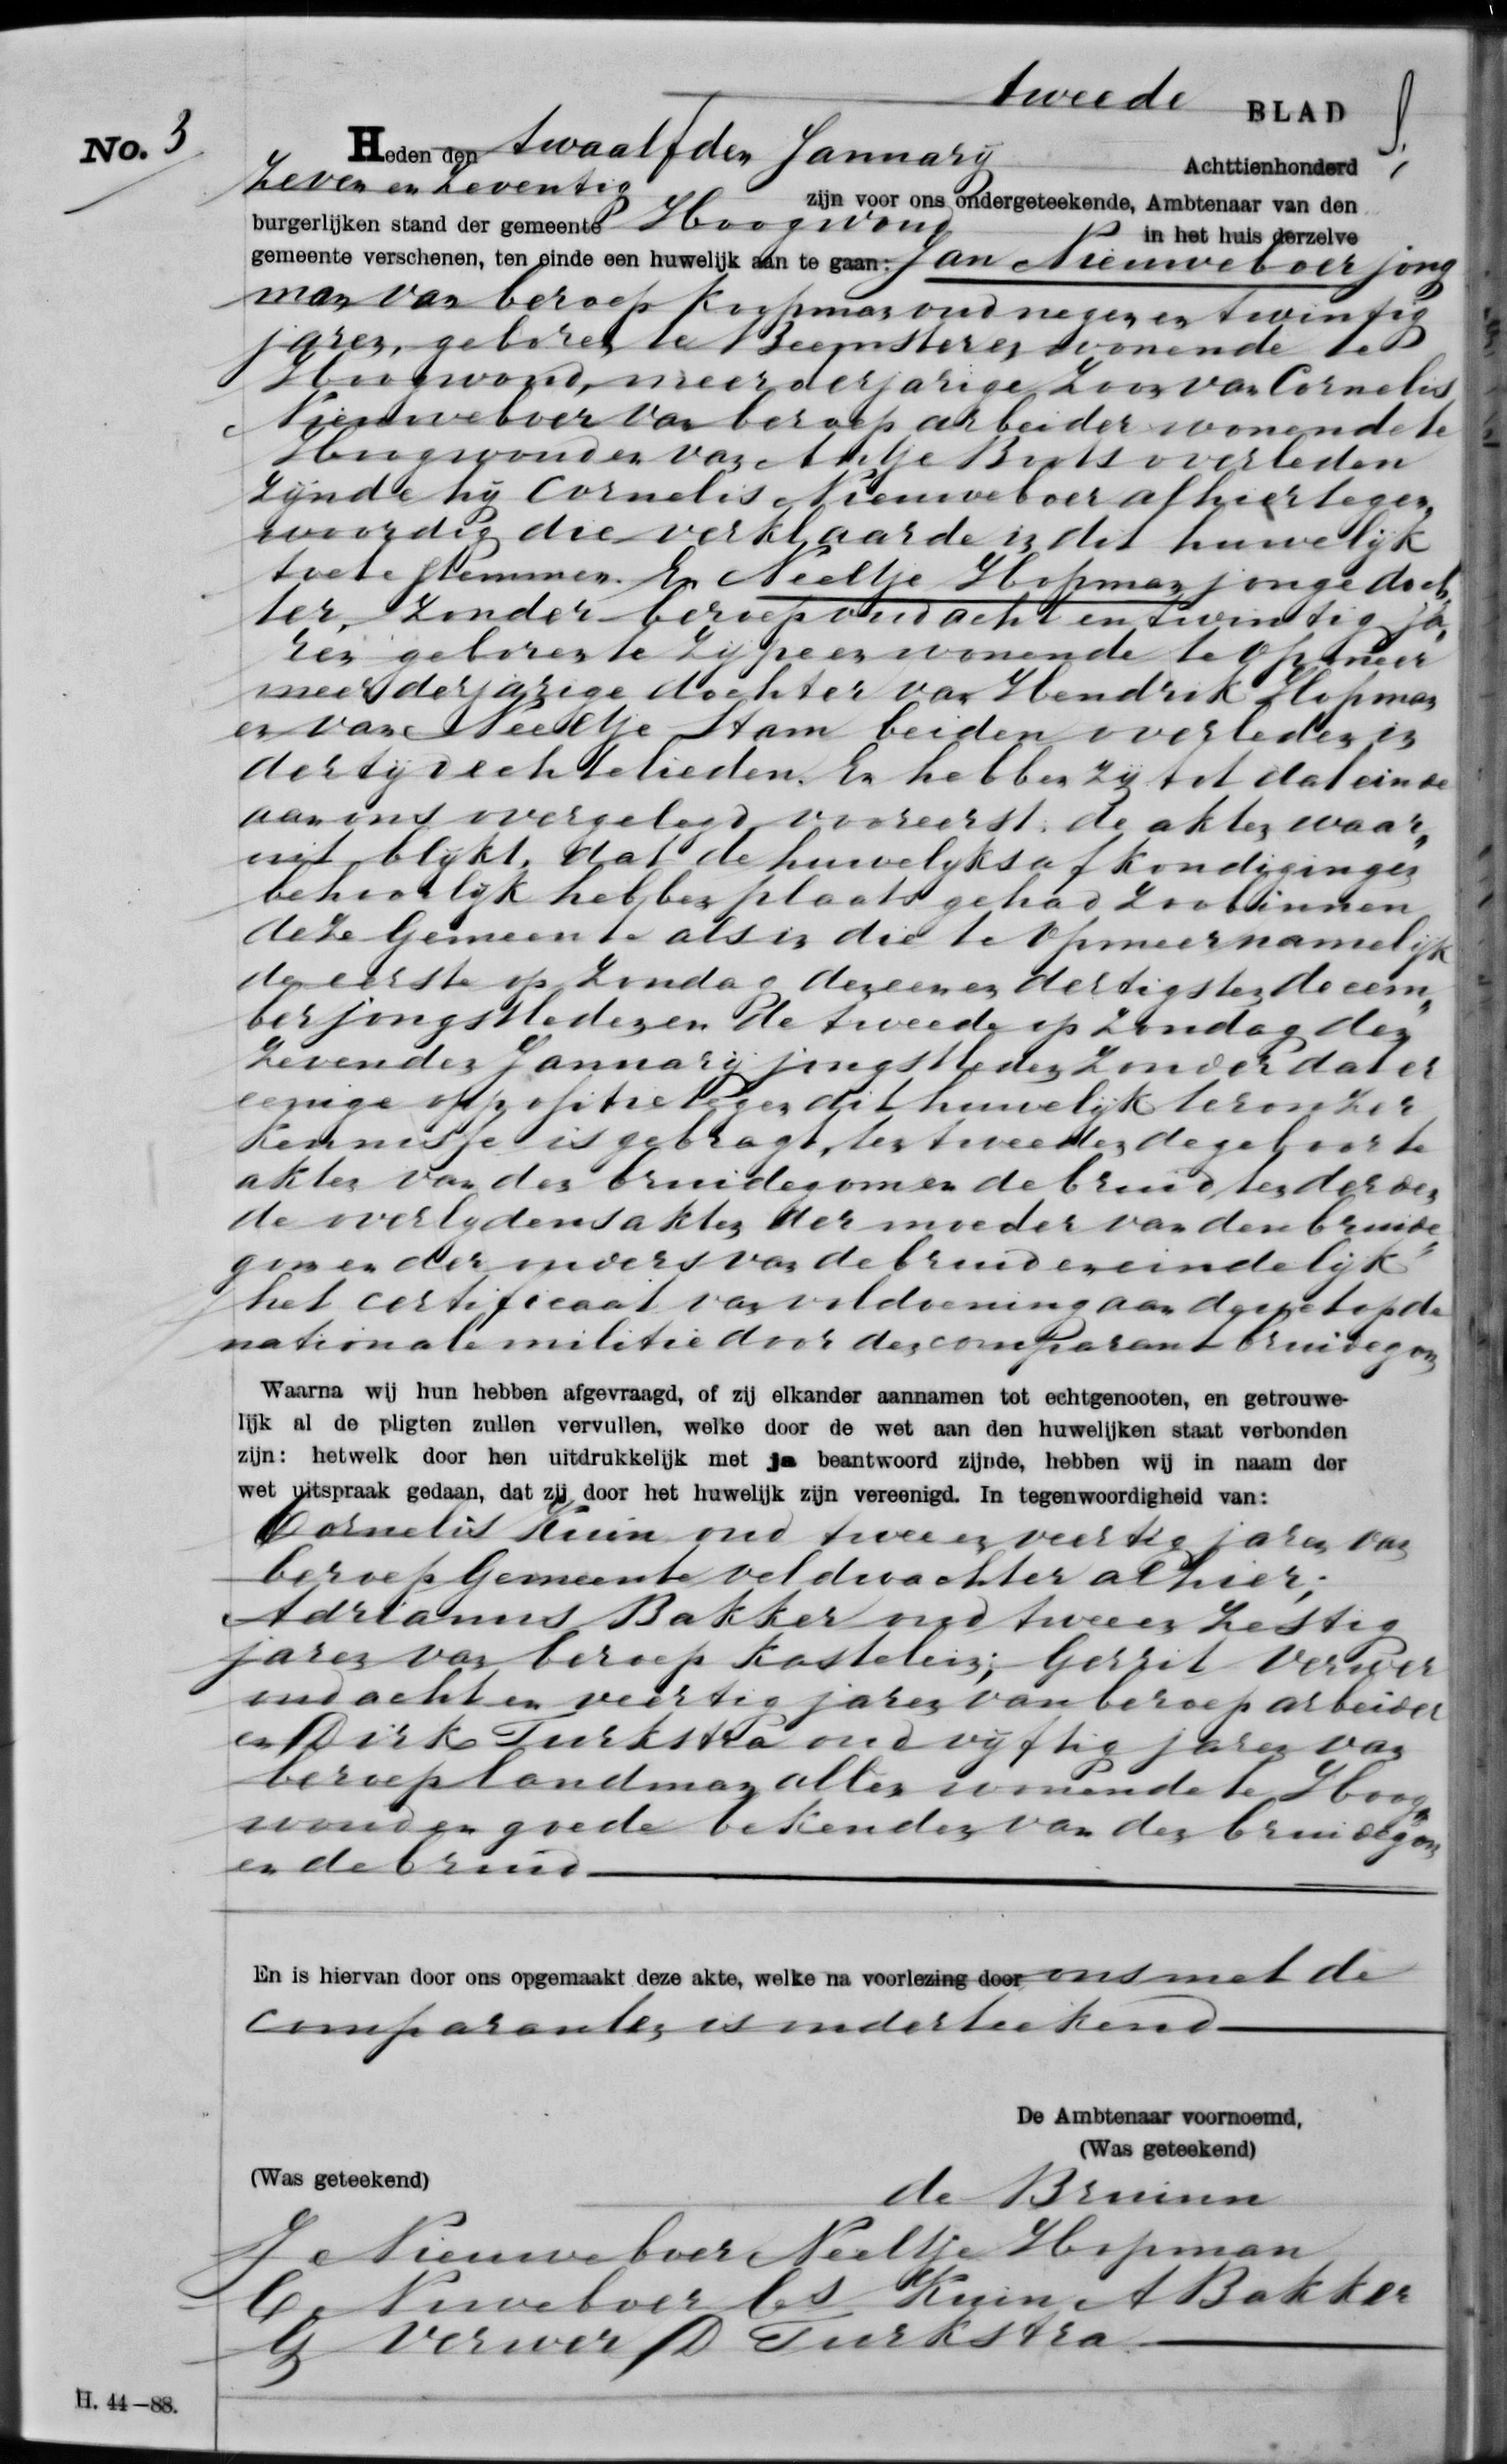 tweede BLAD
No. 3
Heden den twaalfden Januarij Achttienhonderd
Zeven en Zeventig zijn voor ons ondergeteekende, Ambtenaar van den
burgerlijken stand der gemeente Hoogwoud in het huis derzelve
gemeente verschenen, ten einde een huwelijk aan te gaan: Jan Nieuweboer jong
man van beroep koopman oud negen en twintig
jaren, geboren te Beemster en wonende te
Hoogwoud, meerderjarige Zoon van Cornelis
Nieuweboer van beroep arbeider wonende te
Hoogwoud en van Antje Buts overleden
Zijnde hij Cornelis Nieuweboer alhier tegen„
woordig die verklaarde in dit huwelijk
toe te stemmen. En Neeltje Hopman jonge doch„
ter, Zonder beroep oud acht en twintig ja„
ren geboren te Zijpe en wonende te Opmeer
meerderjarige dochter van Hendrik Hopman
en van Neeltje Stam beiden overleden in
dertijd echtelieden. En hebben Zij tot dat einde
aan ons overgelegd vooreerst: de akten waar„
uit blijkt, dat de huwelijksafkondigingen
behoorlijk hebben plaats gehad Zoo binnen
deze Gemeente als in die te Opmeer namelijk
de eerste op Zondag den een en dertigsten decem„
ber jongstleden en de tweede op Zondag den
Zevenden Januarij jongstleden Zonder dat er
eenige oppositie tegen dit huwelijk ter onzer
kennisse is gebragt, ten tweeden de geboorte
akten van den bruidegom en de bruid, ten derden
de overlydensakten der moeder van den bruide„
gom en der ouders van de bruid en eindelijk
het certificaat van voldoening aan de wet op de
nationale militie door den comparant bruidegom
Waarna wij hun hebben afgevraagd, of zij elkander aannamen tot echtgenooten, en getrouwe-
lijk al de pligten zullen vervullen, welke door de wet aan den huwelijken staat verbonden
zijn: hetwelk door hen uitdrukkelijk met ja beantwoord zijnde, hebben wij in naam der
wet uitspraak gedaan, dat zij door het huwelijk zijn vereenigd. In tegenwoordigheid van:
Cornelis Kuin oud twee en veertig jaren van
beroep Gemeente veldwachter alhier;
Adrianus Bakker oud twee en Zestig
jaren van beroep kastelein; Gerrit Verwer
oud acht en veertig jaren van beroep arbeider
en Dirk Turkstra oud vijftig jaren van
beroep landman allen wonende te Hoog„
woud en goede bekenden van den bruidegom
en de bruid
En is hiervan door ons opgemaakt deze akte, welke na voorlezing door ons met de
comparanten is onderteekend
De Ambtenaar voornoemd,
(Was geteekend)
(Was geteekend)
de Bruinn
J Nieuweboer Neeltje Hopman
C. Nuweboer Cs Kuin A Bakker
G Verwer D Turkstra
H. 44-88.